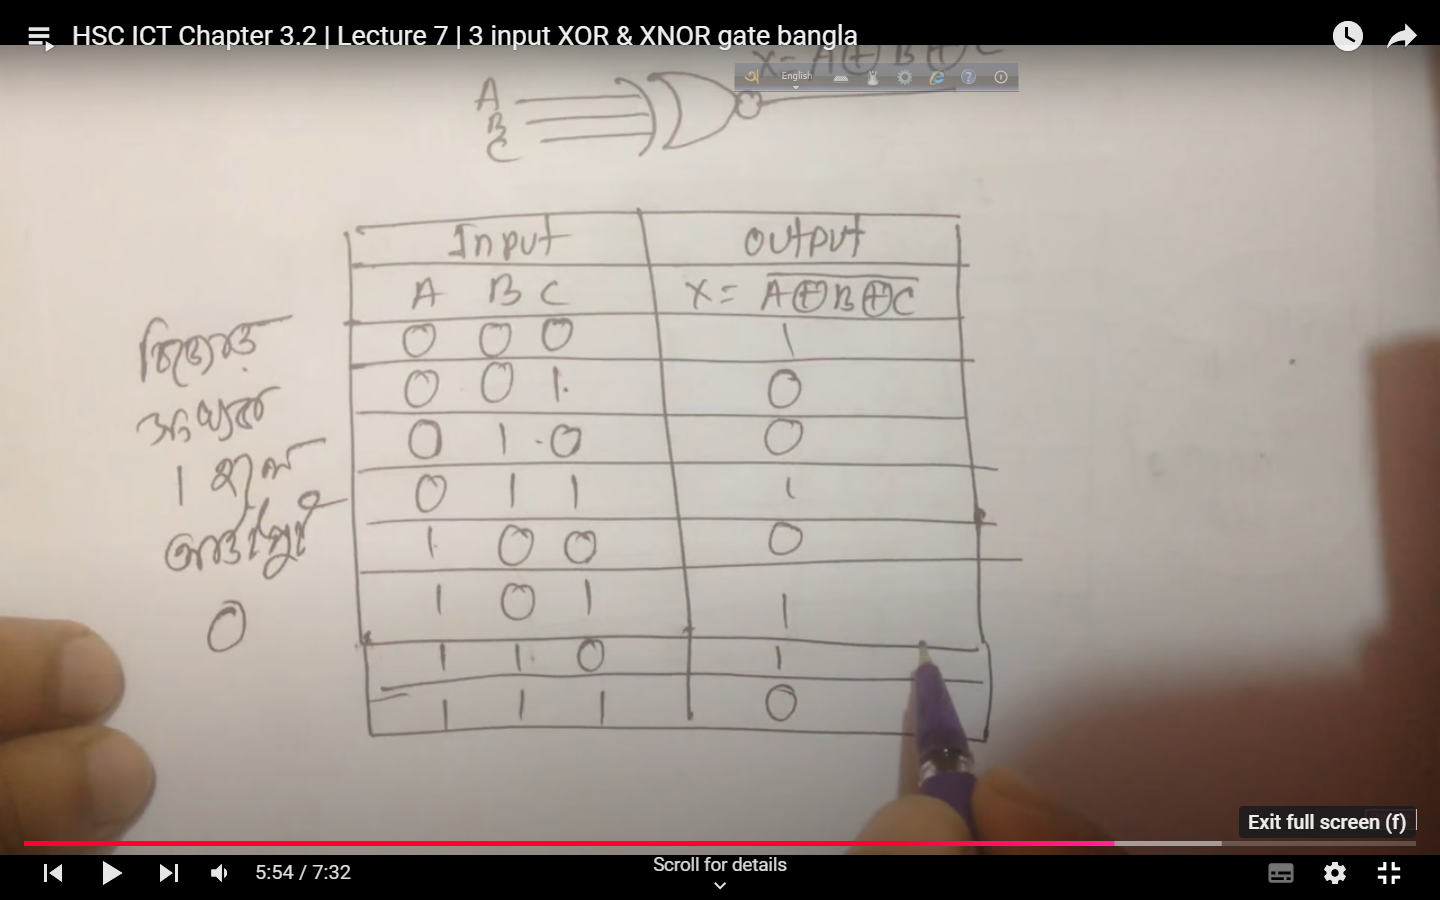 HSC ICT Chapter 3.2 | Lecture 7 | 3 input XOR & XNOR gate bangla
X = A ⊕ B ⊕ C
English
A
B
C
Input Output
A B C X = \overline{A⊕B⊕C}
0 0 0 1
0 0 1 0
0 1 0 0
0 1 1 1
1 0 0 0
1 0 1 1
1 1 0 1
1 1 1 0
বিজোড়
সংখ্যক
1 হলে
আউটপুট
0
Exit full screen (f)
5:54 / 7:32
Scroll for details